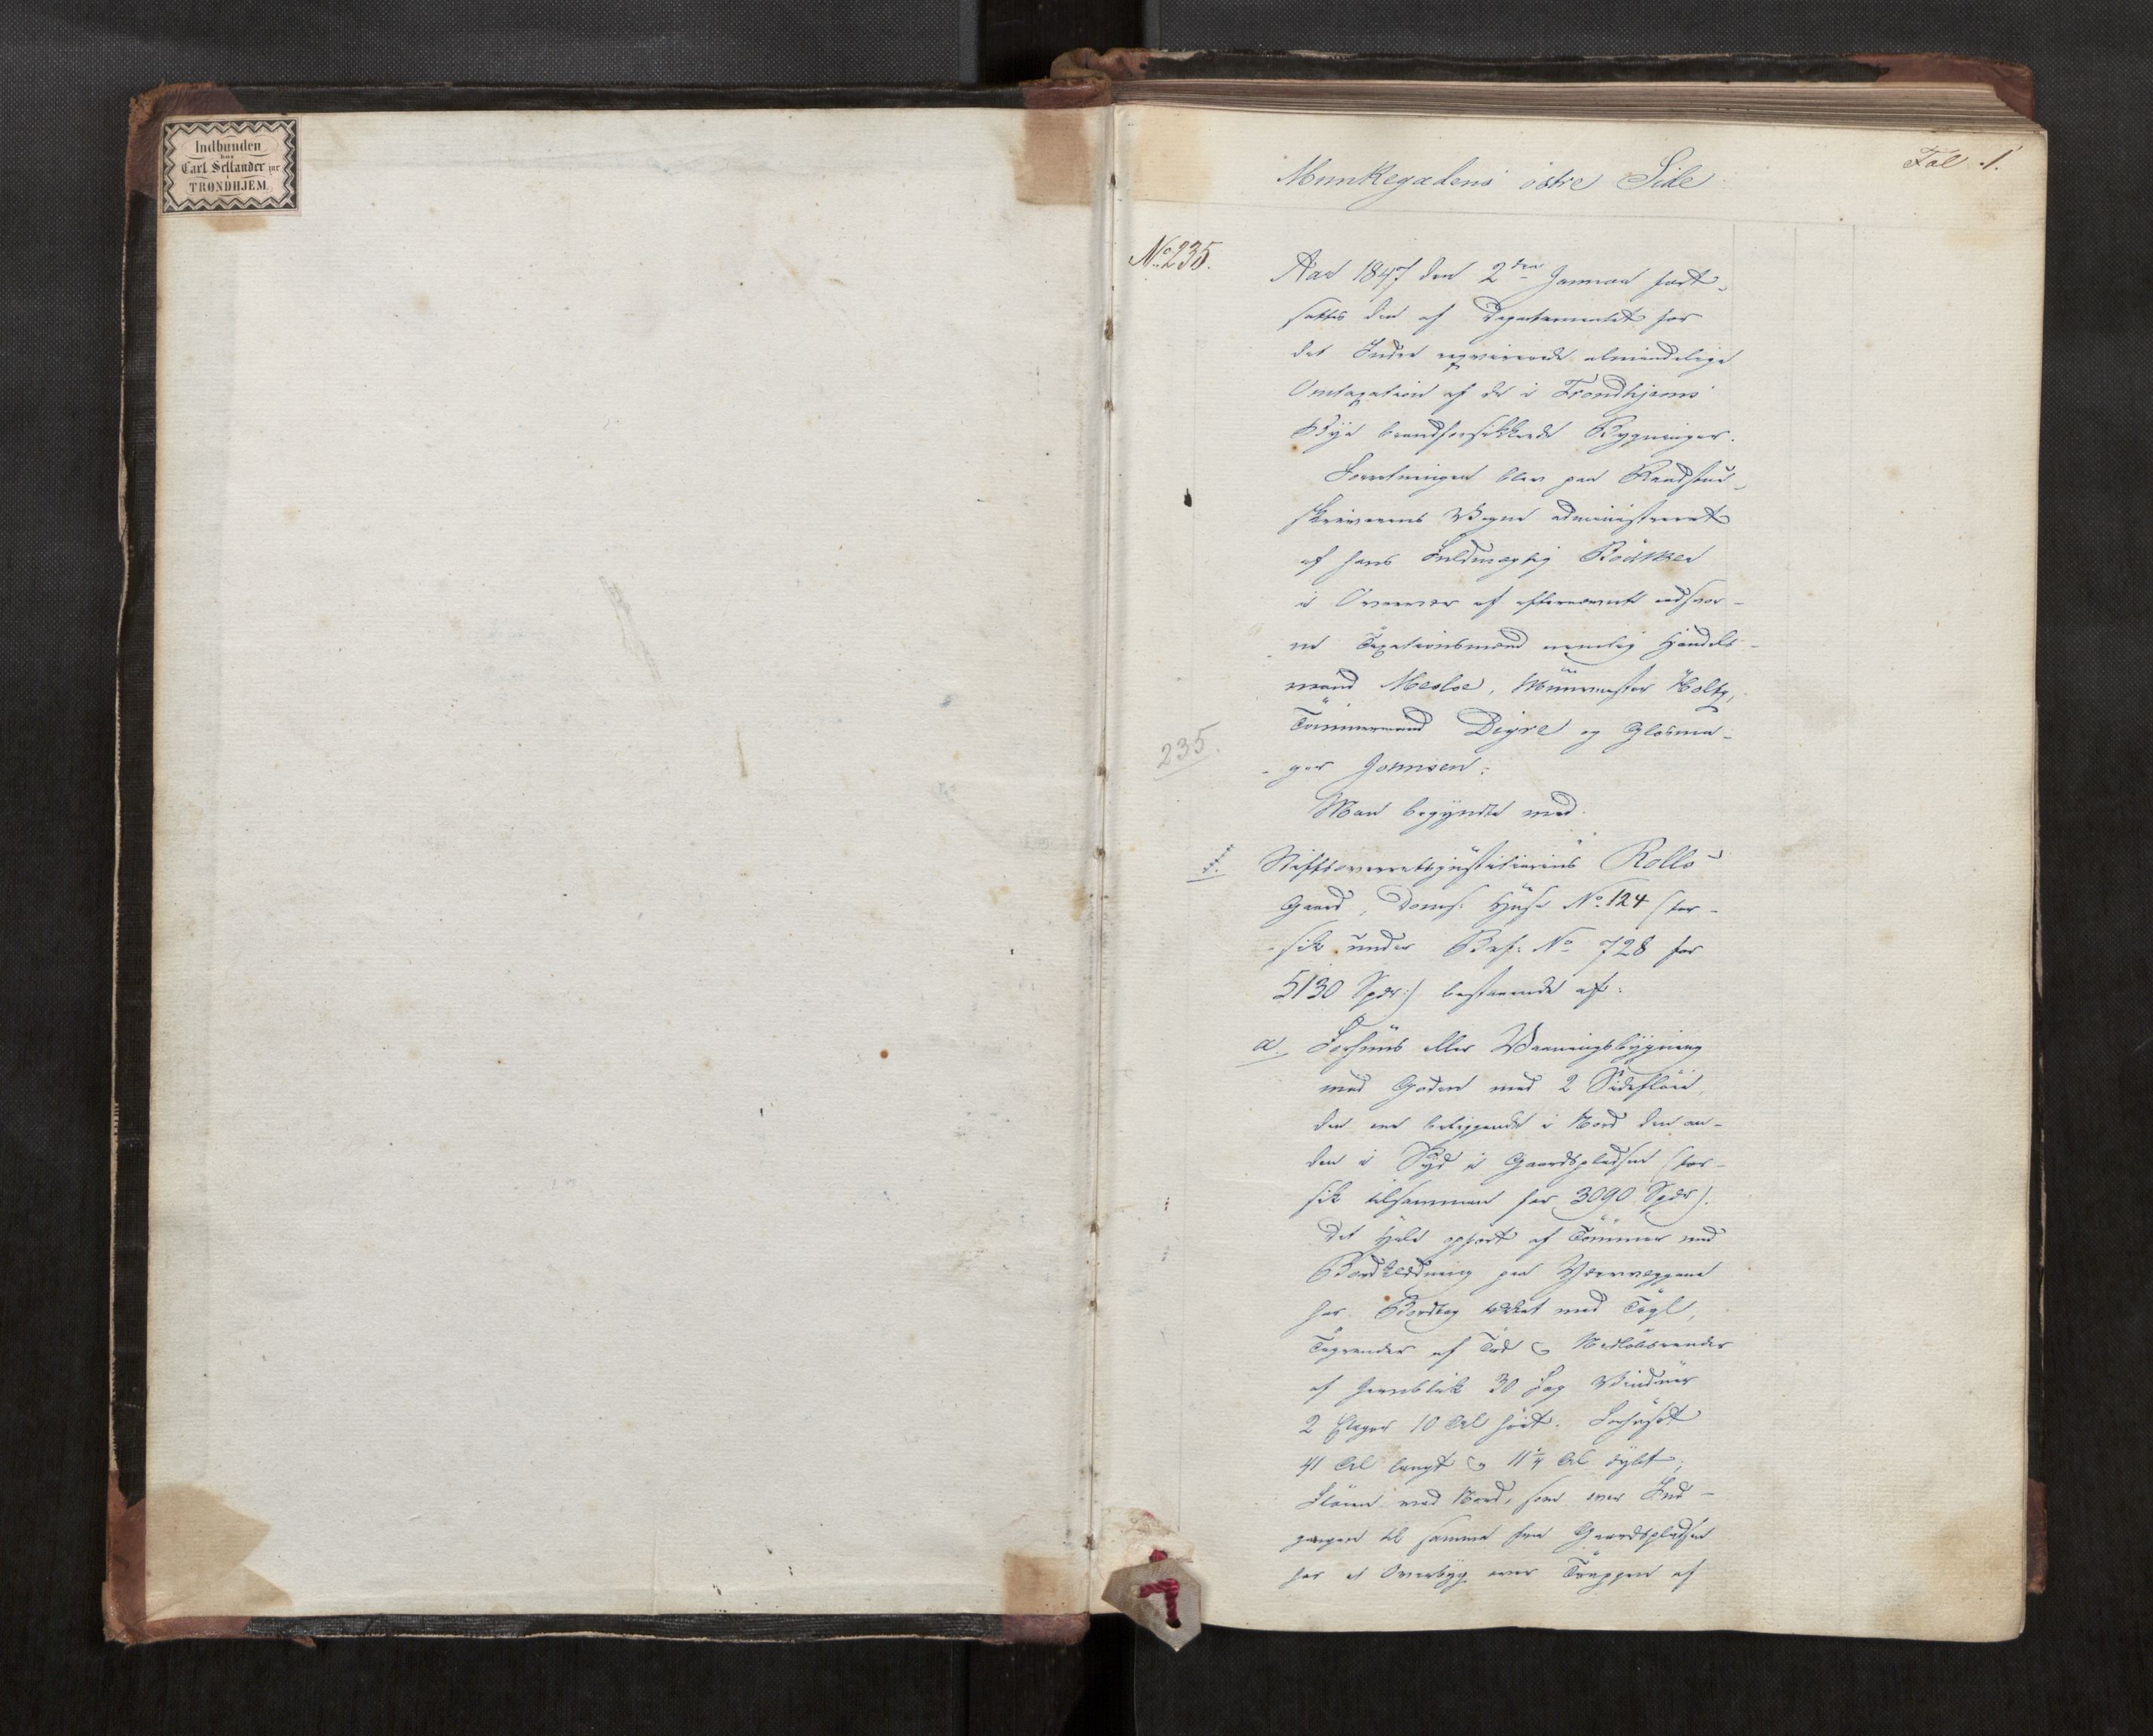 Indbunden
hos
Carl Sellander jur.
i
TRONDHJEM.
Fol. 1.
Munkegadens östre Side
No 235.
Aar 1847 den 2den Januar fort-
sattes den af Departementet for
det Indre reqvirerede almindelige
Omtaxation af de i Trondhjems
Bye brandforsikkrede Bygninger.
Forretningen blev paa Raadstue-
skriverens Vegne administreret
af hans Fuldmægtig
i Overvær af efternævnte edsvor-
ne Taxationsmænd nemlig Handels-
mand Mesloe, Muurmester
Tømmermand Digre og Glasma-
235.
-ger Jonnsen:
Man begyndte med
1. Stiftsoverretsjustitiarius Rolls
Gaard, Huse No. 124 (for-
-sik under Bef: No 728 for
5130 Spdr:) bestaaende af:
a. Forhuus eller Vaaningsbygning
mod Gaden med 2 Sidefløie,
den ene beliggende i Nord den an-
den i Syd i Gaardspladsen (for-
sik tilsammen for 3090 Spdr).
Det Hele opført af Tömmer med
Bordklædning paa Ydervæggene
har Bordtag tækket med Tegl,
Tagrender af Træ & Nedløbsrender
af Jernblik 30 Fag Vinduer
2 Etager 10 Al høit. Forhuset
41 Al langt & 11 1/4 Al dybt;
Fløien mod Nord, som over Ind-
gangen til samme fra Gaardspladsen
har et Overbyg over Trappen af